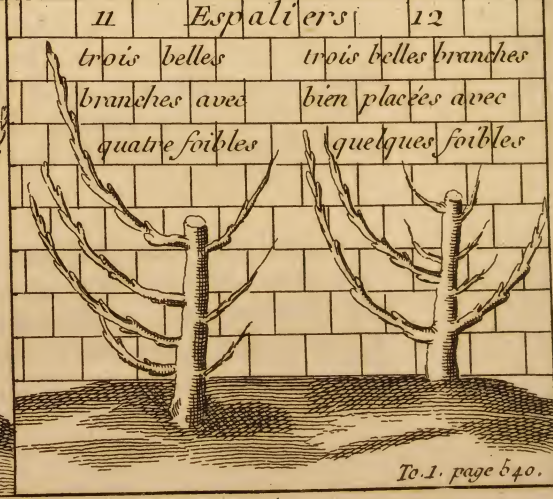 11 Espaliers 12
trois belles
branches avec
quatre foibles
trois belles branches
bien placées avec
quelques foibles
To. 1. page 540.